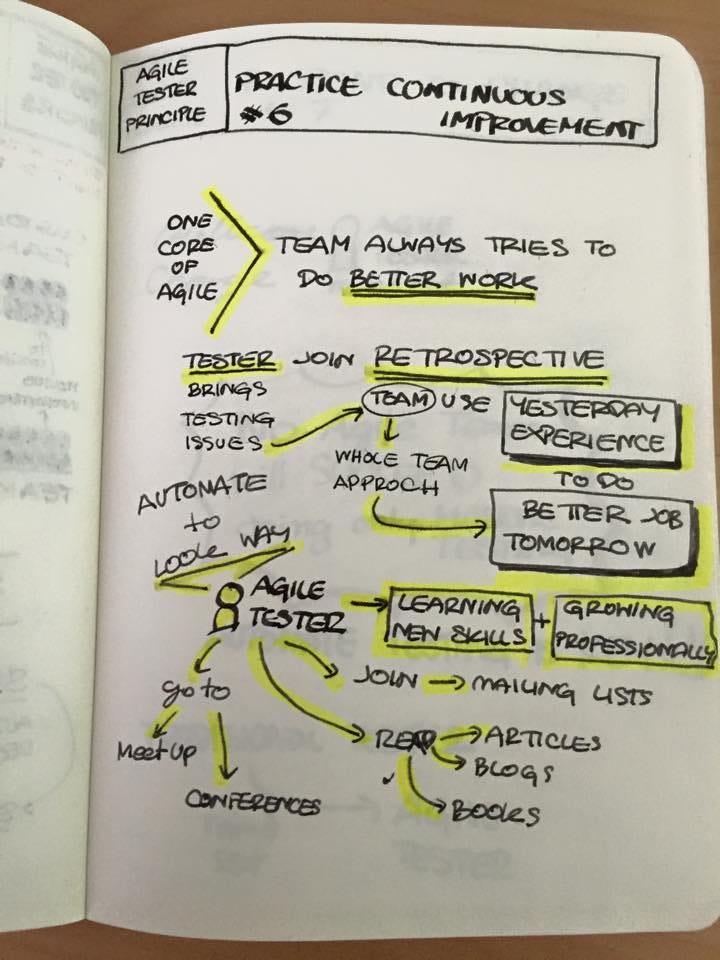 AGILE
TESTER
PRINCIPLE
PRACTICE CONTINUOUS
#6 IMPROVEMENT
ONE
CORE
OF
AGILE
TEAM ALWAYS TRIES TO
DO BETTER WORK
TESTER JOIN RETROSPECTIVE
BRINGS
TESTING
ISSUES
TEAM USE
YESTERDAY
EXPERIENCE
WHOLE TEAM
APPROCH
TO DO
BETTER JOB
TOMORROW
AUTOMATE
to
WAY
AGILE
TESTER
LEARNING
NEW SKILLS
+
GROWING
PROFESSIONALLY
go to
Meet up
CONFERENCES
JOIN → MAILING LISTS
READ → ARTICLES
BLOGS
BOOKS